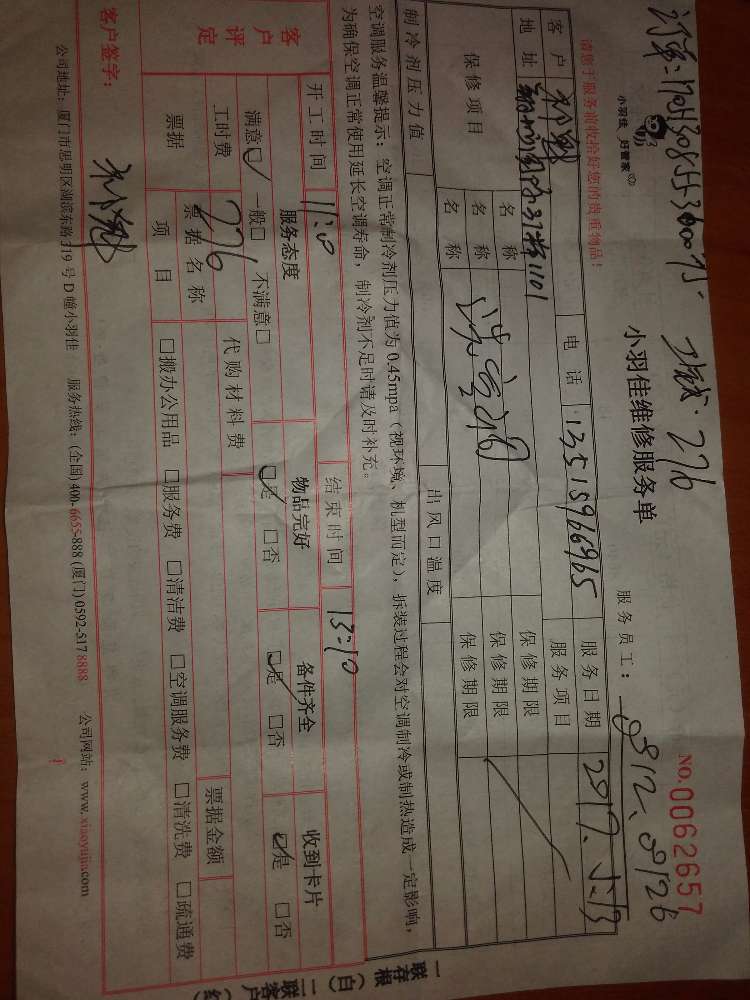 小羽佳 好管家
工钱:276
小羽佳维修服务单
服务员工: 8912、8126
NO.0062657
请您于服务前收拾好您的贵重物品!
客户
电话 13515966965
服务日期 2017、5:13
地址
服务项目
保修项目
名称
保修期限
名称 洗空调
保修期限
名称
保修期限
制冷剂压力值
出风口温度
空调服务温馨提示:空调正常制冷剂压力值为0.45mpa(视环境、机型而定),拆装过程会对空调制冷或制热造成一定影响,
为确保空调正常使用延长空调寿命,制冷剂不足时请及时补充。
开工时间 11:0
结束时间 13:10
客户评定
服务态度
物品完好
备件齐全
收到卡片
满意☑ 一般□ 不满意□
☑是 □否
☑是 □否
☑是 □否
工时费 276
代购材料费
票据
票据名称
票据金额
项目
□搬办公用品 □服务费 □清洁费 □空调服务费 □清洗费 □疏通费
客户签字:
公司地址:厦门市思明区湖滨东路319号D幢小羽佳 服务热线:(全国)400-6655-888 (厦门)0592-5178888 公司网站:www.xiaoyujia.com
一联存根(白) 二联客户(红)